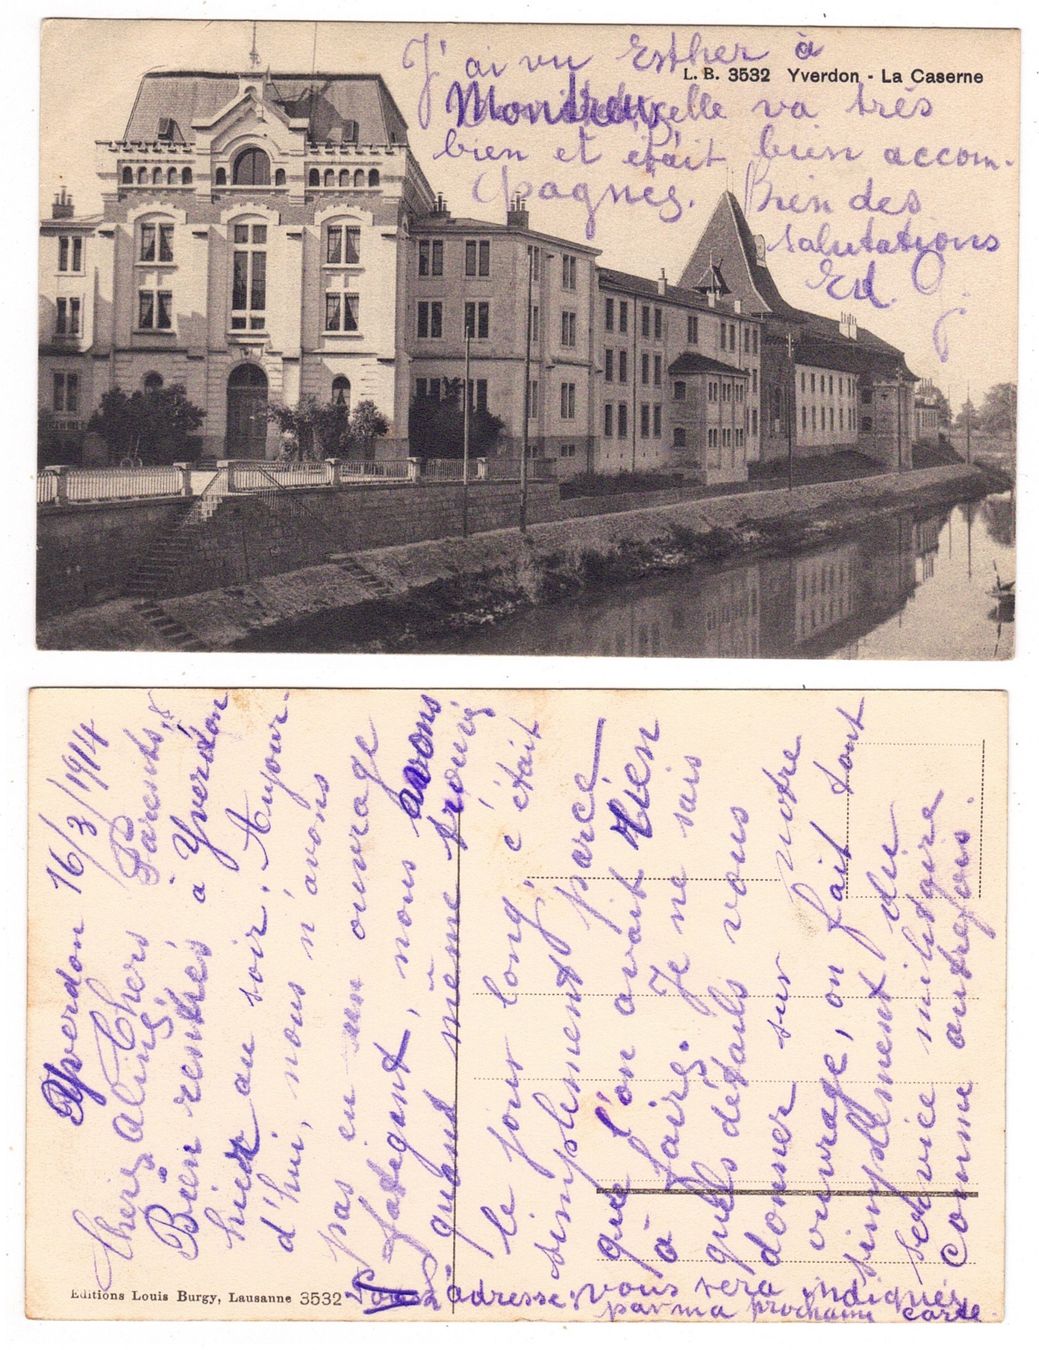 L. B. 3532 Yverdon - La Caserne
J'ai vu Esther à
Montreux, elle va très
bien et était bien accom-
pagnés. Bien des
salutations
Ed.
Yverdon 16/3/1914
Chers Parents,
Bien rentrés à Yverdon
hier au soir. Aujour-
d'hui, nous n'avons
pas eu un ouvrage
fatigant, nous avons
quand même trouvé
le jour long, c'était
simplement parce
que l'on avait rien
à faire. Je ne sais
quels détails vous
donner sur notre
ouvrage, on fait tout
simplement du
service militaire
comme autrefois.
adresse: vous sera indiquée
par ma prochaine carte.
Editions Louis Burgy, Lausanne 3532